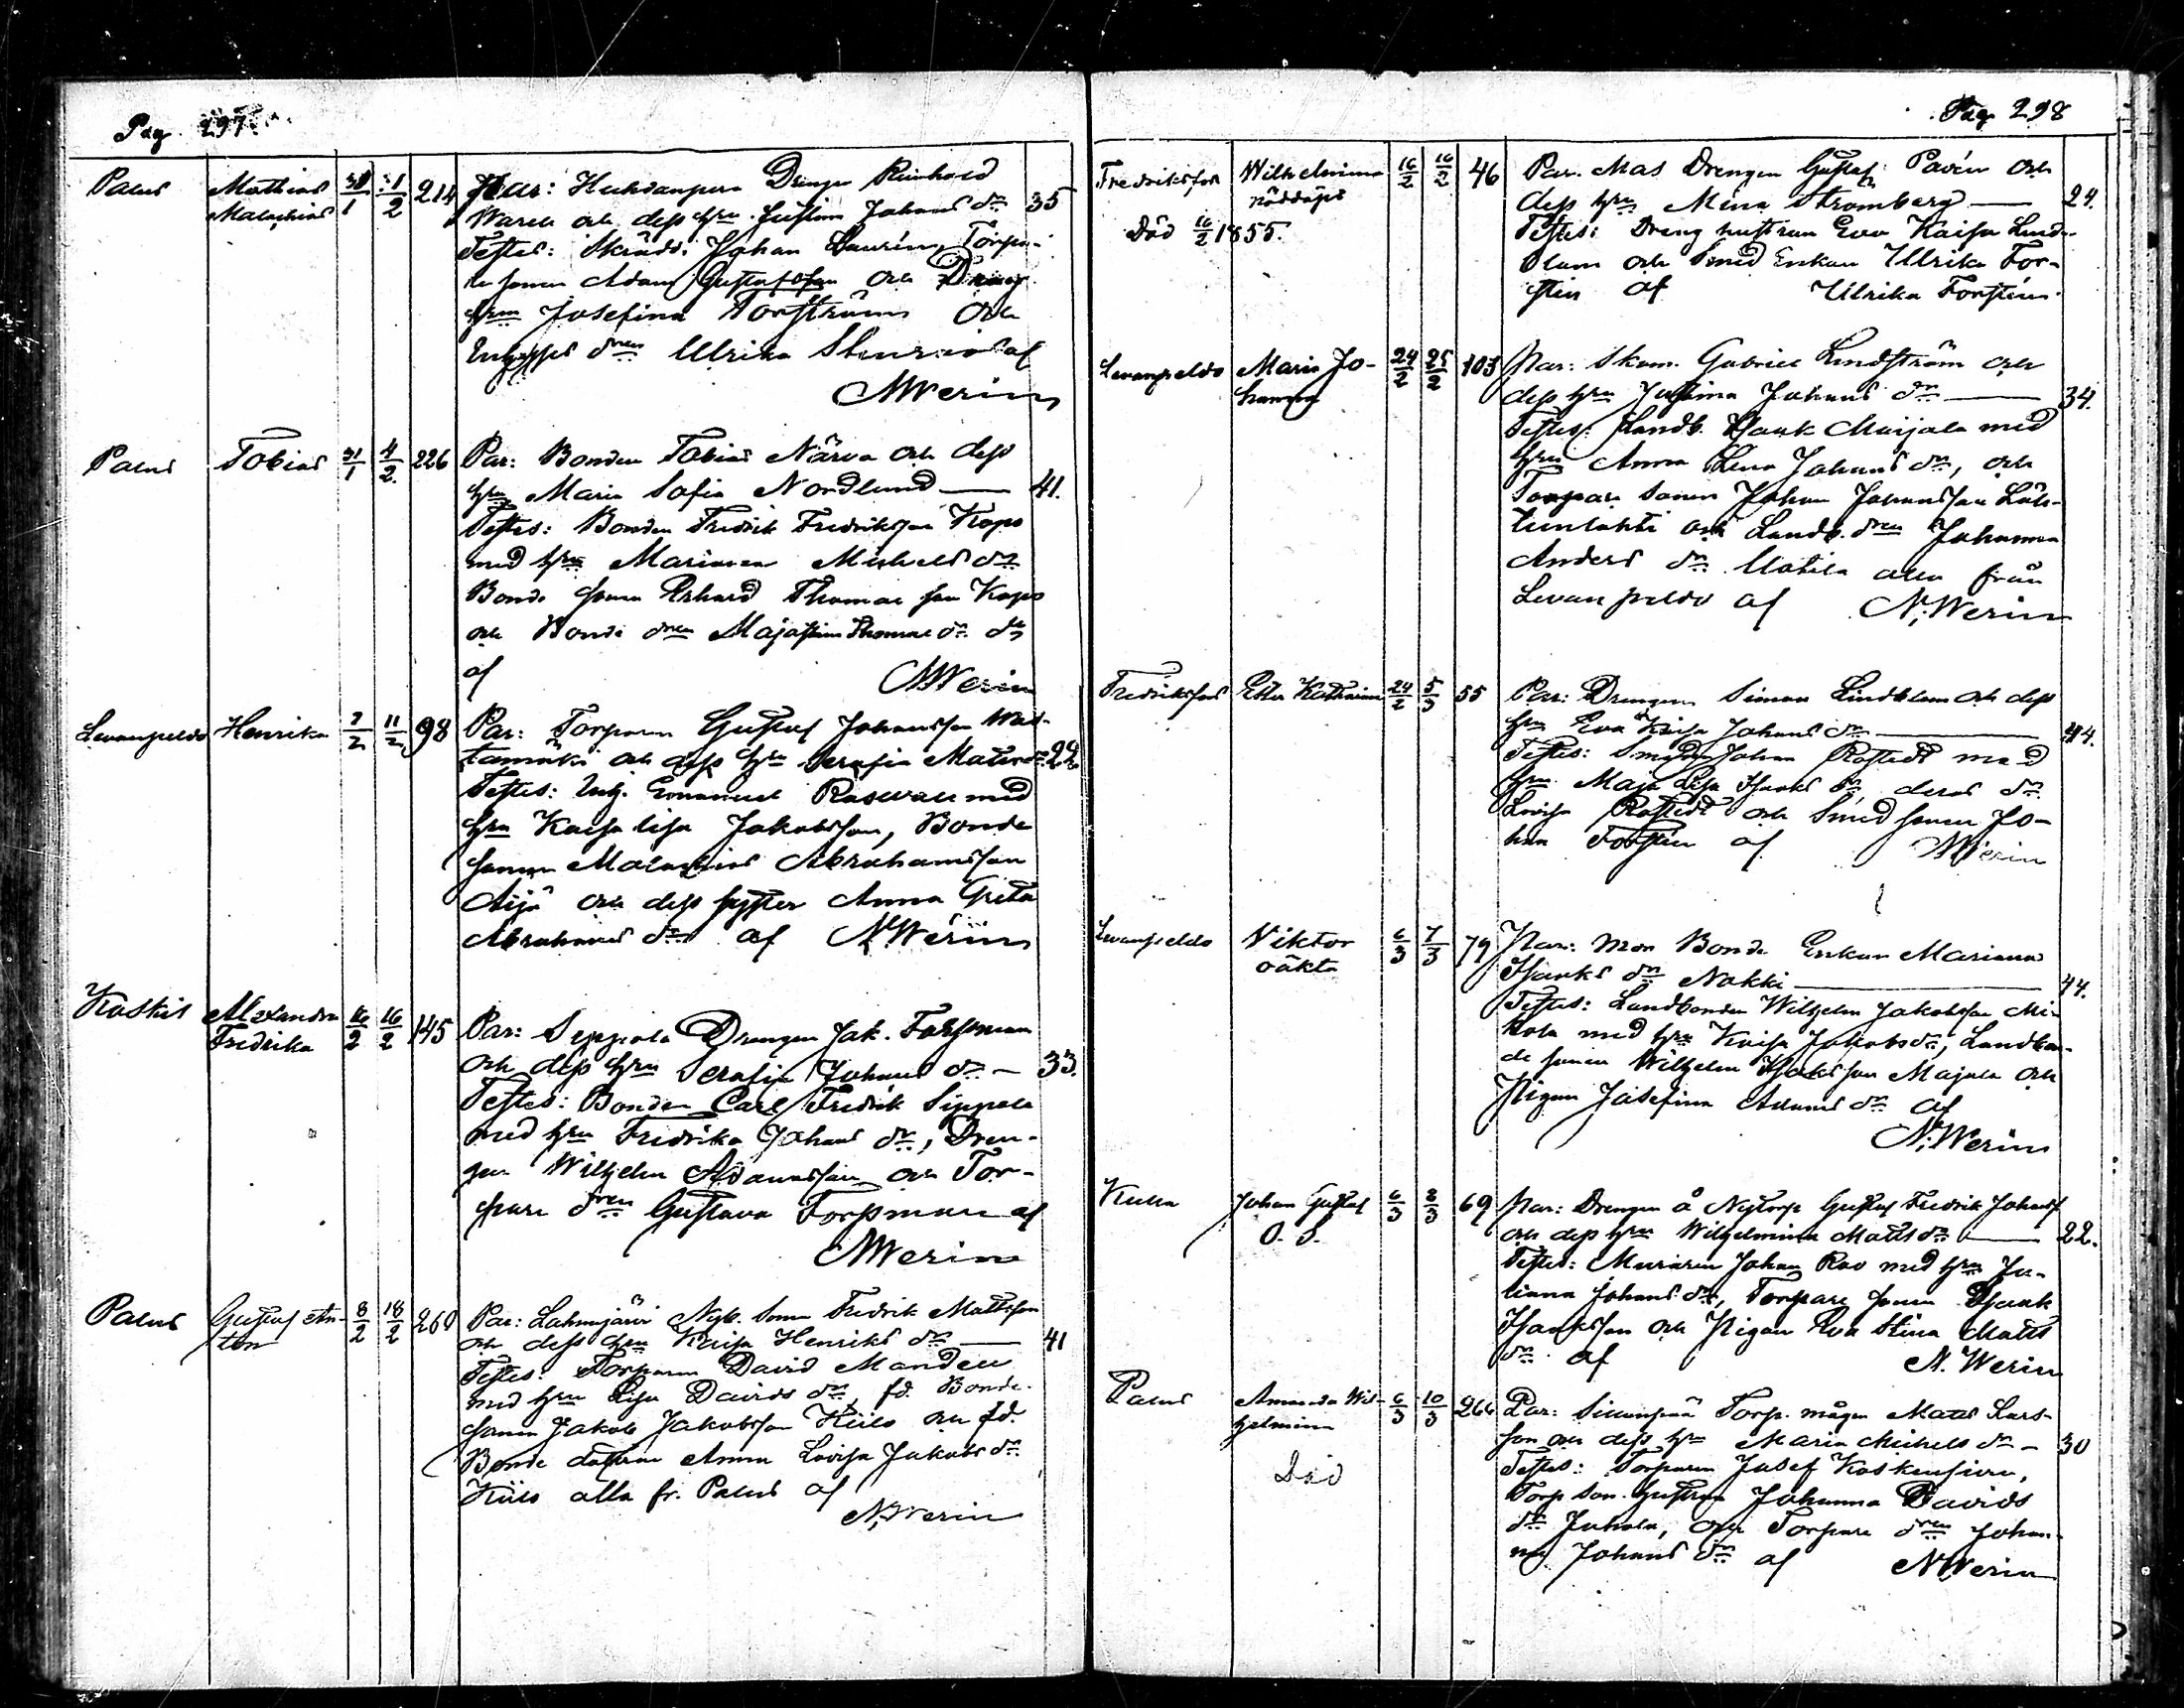 Pag. 297.
Palus Mathias 31/1 1/2 214 Par: Drengen Reinhold
Malachias och dess hru Justina Johans dr 35
Testes: Skrädd. Johan Laurén, Torpa-
re sonen Adam Gustafsson och Dreng
hru Josefina och
Ulrika af
N Werin
Palus Tobias 31/1 4/2 226 Par: Bonden Tobias Närva och dess
hru Maria Sofia Nordlund — 41.
Testes: Bonden Fredrik Fredriksson Kapo
med hru Marianna Michels dr
Bonde sonen Erhard Thomasson Kapo
och Bonde dren Majastina Thomae dr
af N Werin
Levanpeldo Henrika 7/2 11/2 98 Par: Torparen Gustaf Johansson
och dess hru Serafia Mats dr 22
Testes: Inh. Emanuel med
hru Kajsa Lisa Jakobsson, Bonde
sonen Malachias Abrahamsson
Äijö och dess syster Anna Greta
Abrahams dr af N Werin
Koskis Alexandra 16/2 16/2 145 Par: Seppala Drengen Jak. Forssman
Fredrika och dess hru Serafia Johans dr — 33.
Testes: Bonden Carl Fredrik Seppala
med hru Fredrika Johans dr, Dren-
gen Wilhelm Adamsson och Tor-
pare dren Gustava Forssman af
N Werin
Palus Gustaf An- 8/2 18/2 260 Par: Lahmajärvi Nyb. Son Fredrik Mattsson
ton och dess hru Kaisa Henriks dr — 41
Testes: Torparen David Mandell
med hru Lisa Davids dr, fd. Bonde
sonen Jakob Jakobsson Kiilo och fd.
Bonde dottren Anna Lovisa Jakobs dr
Kiilo alla fr. Palus af
N. Werin
Pag. 298
Fredriksfors Wilhelmina 16/2 16/2 46 Par. Mas Drengen Gustaf Pavén och
nöddöpt dess hru Mina Strömberg — 24.
Död 16/2 1855. Testes: Dreng hustrun Eva Kaisa Lind-
blom och Smed Enkan Ulrika For-
stén af Ulrika Forstén.
Levanpeldo Maria Jo- 24/2 25/2 103 Par: Skom. Gabriel Lindström och
hanna dess hru Justina Johans dr — 34.
Testes: Landb. Isaak Maijala med
hru Anna Lena Johans dr, och
Torpare sonen Johan Johansson
och Landb. dren Johanna
Anders dr Uotila alla från
Levanpeldo af N. Werin
Fredriksfors Ester Katharina 24/2 5/3 55 Par: Drengen Simon Lindblom och dess
hru Eva Kaisa Johans dr — 44.
Testes: Smeden Johan Rostedt med
hru Maja Lisa Isaaks dr, deras dr
Lovisa Rostedt och Smed sonen Jo-
han Forstén af N Werin
Levanpeldo Viktor 6/3 7/3 79 Par: Mor Bonde Enkan Mariana
oäkta Isaaks dr Nokki — 44.
Testes: Landbonden Wilhelm Jakobsson Mi-
kola med hru Kaisa Jakobs dr, Landbon-
de sonen Wilhelm Isaksson Majala och
Pigan Josefina Adams dr af
N. Werin
Kulla Johan Gustaf 6/3 8/3 69 Par: Drengen å Nytorp Gustaf Fredrik Johanss
O. S. och dess hru Wilhelmina Matts dr — 22.
Testes: Muraren Johan Roo med hru Ju-
liana Johans dr, Torpare sonen Isaak
Isaaksson och Pigan Eva Stina Matts
dr af N. Werin
Palus Amanda Wil- 6/3 10/3 266 Par: Torp. mågen Matts Lars-
helmina son och dess hru Maria Michels dr — 30
Död Testes: Torparen Josef Koskensivu,
Torp son. hustrun Johanna Davids
dr Juhola, och Torpare dren Johan-
na Johans dr af N Werin